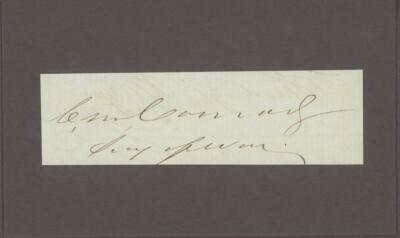 C. M. Conrad
Secy of War.